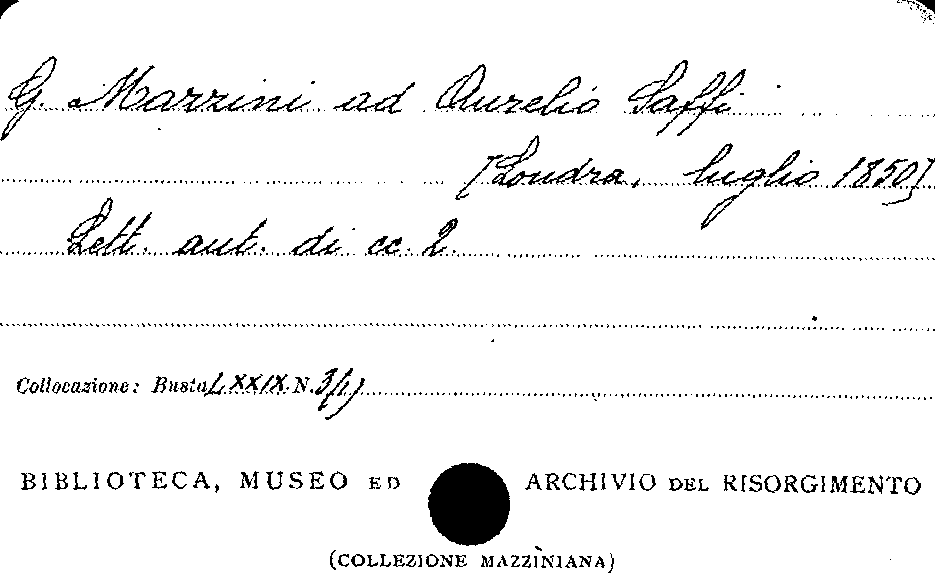 G. Mazzini ad Aurelio Saffi
[Londra, luglio 1850]
Lett. aut. di cc. 2.
Collocazione: Busta LXXIX N. 3/1)
BIBLIOTECA, MUSEO ED ARCHIVIO DEL RISORGIMENTO
(COLLEZIONE MAZZINIANA)